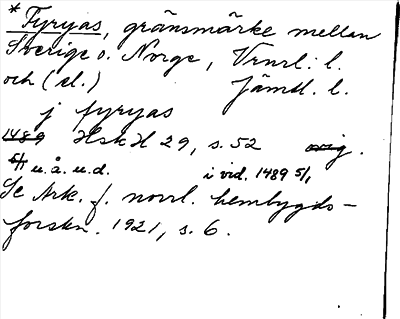 * Fyryas, gränsmärke mellan
Sverige o. Norge, Vrml. l.
och (el.) Jämtl. l.
j fyryas
1489 Hsk H 29, s. 52 orig.
5/1 u.å. u.d. i vid. 1489 5/1
Se Ark. f. norrl. hembygds-
forskn. 1921, s. 6.